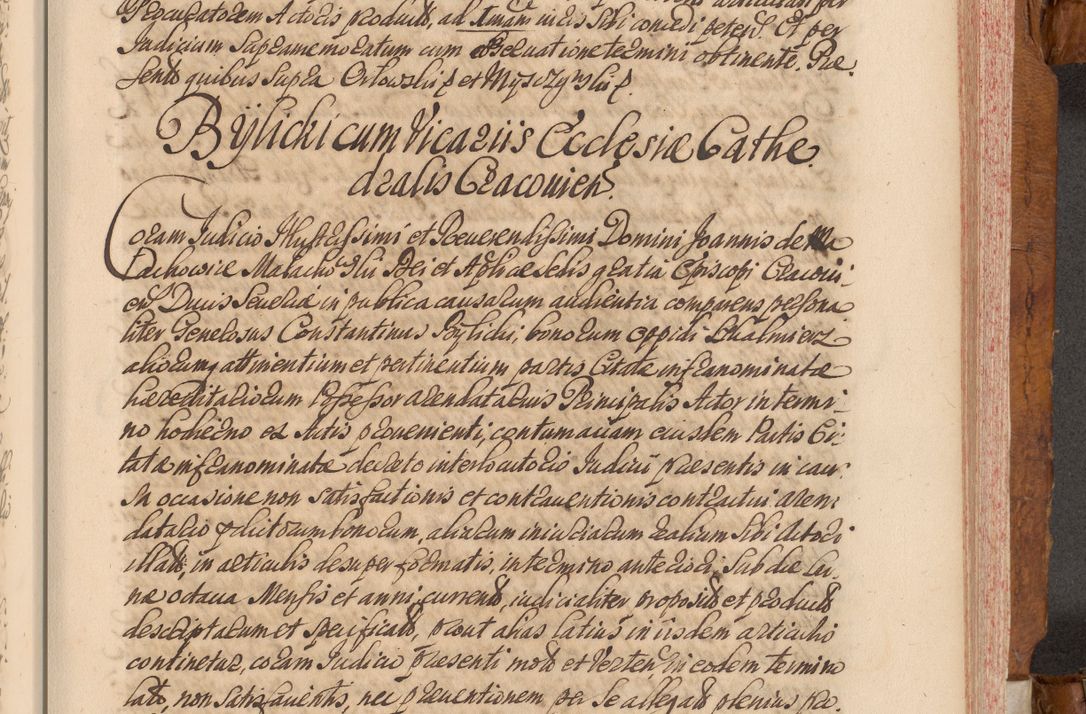 Procuratorem Actoris product, ad 1mam iuris sibi concedi petent. Et per
Judicium Supramemoratum cum observatione termini obtinente. Præ-
sentt quibus supra Orłowski p et Myszczyński p.
Bylicki cum Vicariis Ecclesiæ Cathe
dralis Cracovien.
Coram Judicio Illustrissimi et Reverendissimi Domini Joannis de Ma
łachowice Małachowski Dei et Aplicæ Sedis gratia Episcopi Cracovi-
en Ducis Severiæ in publica causarum audientia comparens persona
liter Generosus Constantinus Bylicki, bonorum oppidi
aliorumq attinentium et pertinentium partis Citatæ infranominatæ
hæreditariorum Possessor arendatarius Principalis Actor in termi-
no hodierno ex Actis provenienti, contumaciam eiusdem Partis Ci-
tatæ infranominatæ decreto interlocutorio Judicii præsentis in caus
In occasione non satisfactionis et contraventionis contractui aren
datario præditorum bonorum, aliarum iniuriarum realium sibi Actori
illat, in articulis desuper formatis, in termino anteriori, sub die Lu-
næ octava Mensis et anni current, iudicialiter proposit et product
descriptarum et specificat, prout alias latius in iisdem articulis
continetur, coram Judicio præsenti mot et Verten, in eodem termino
lato, non satisfacientis, nec præventionem per se allegat plenius pro-